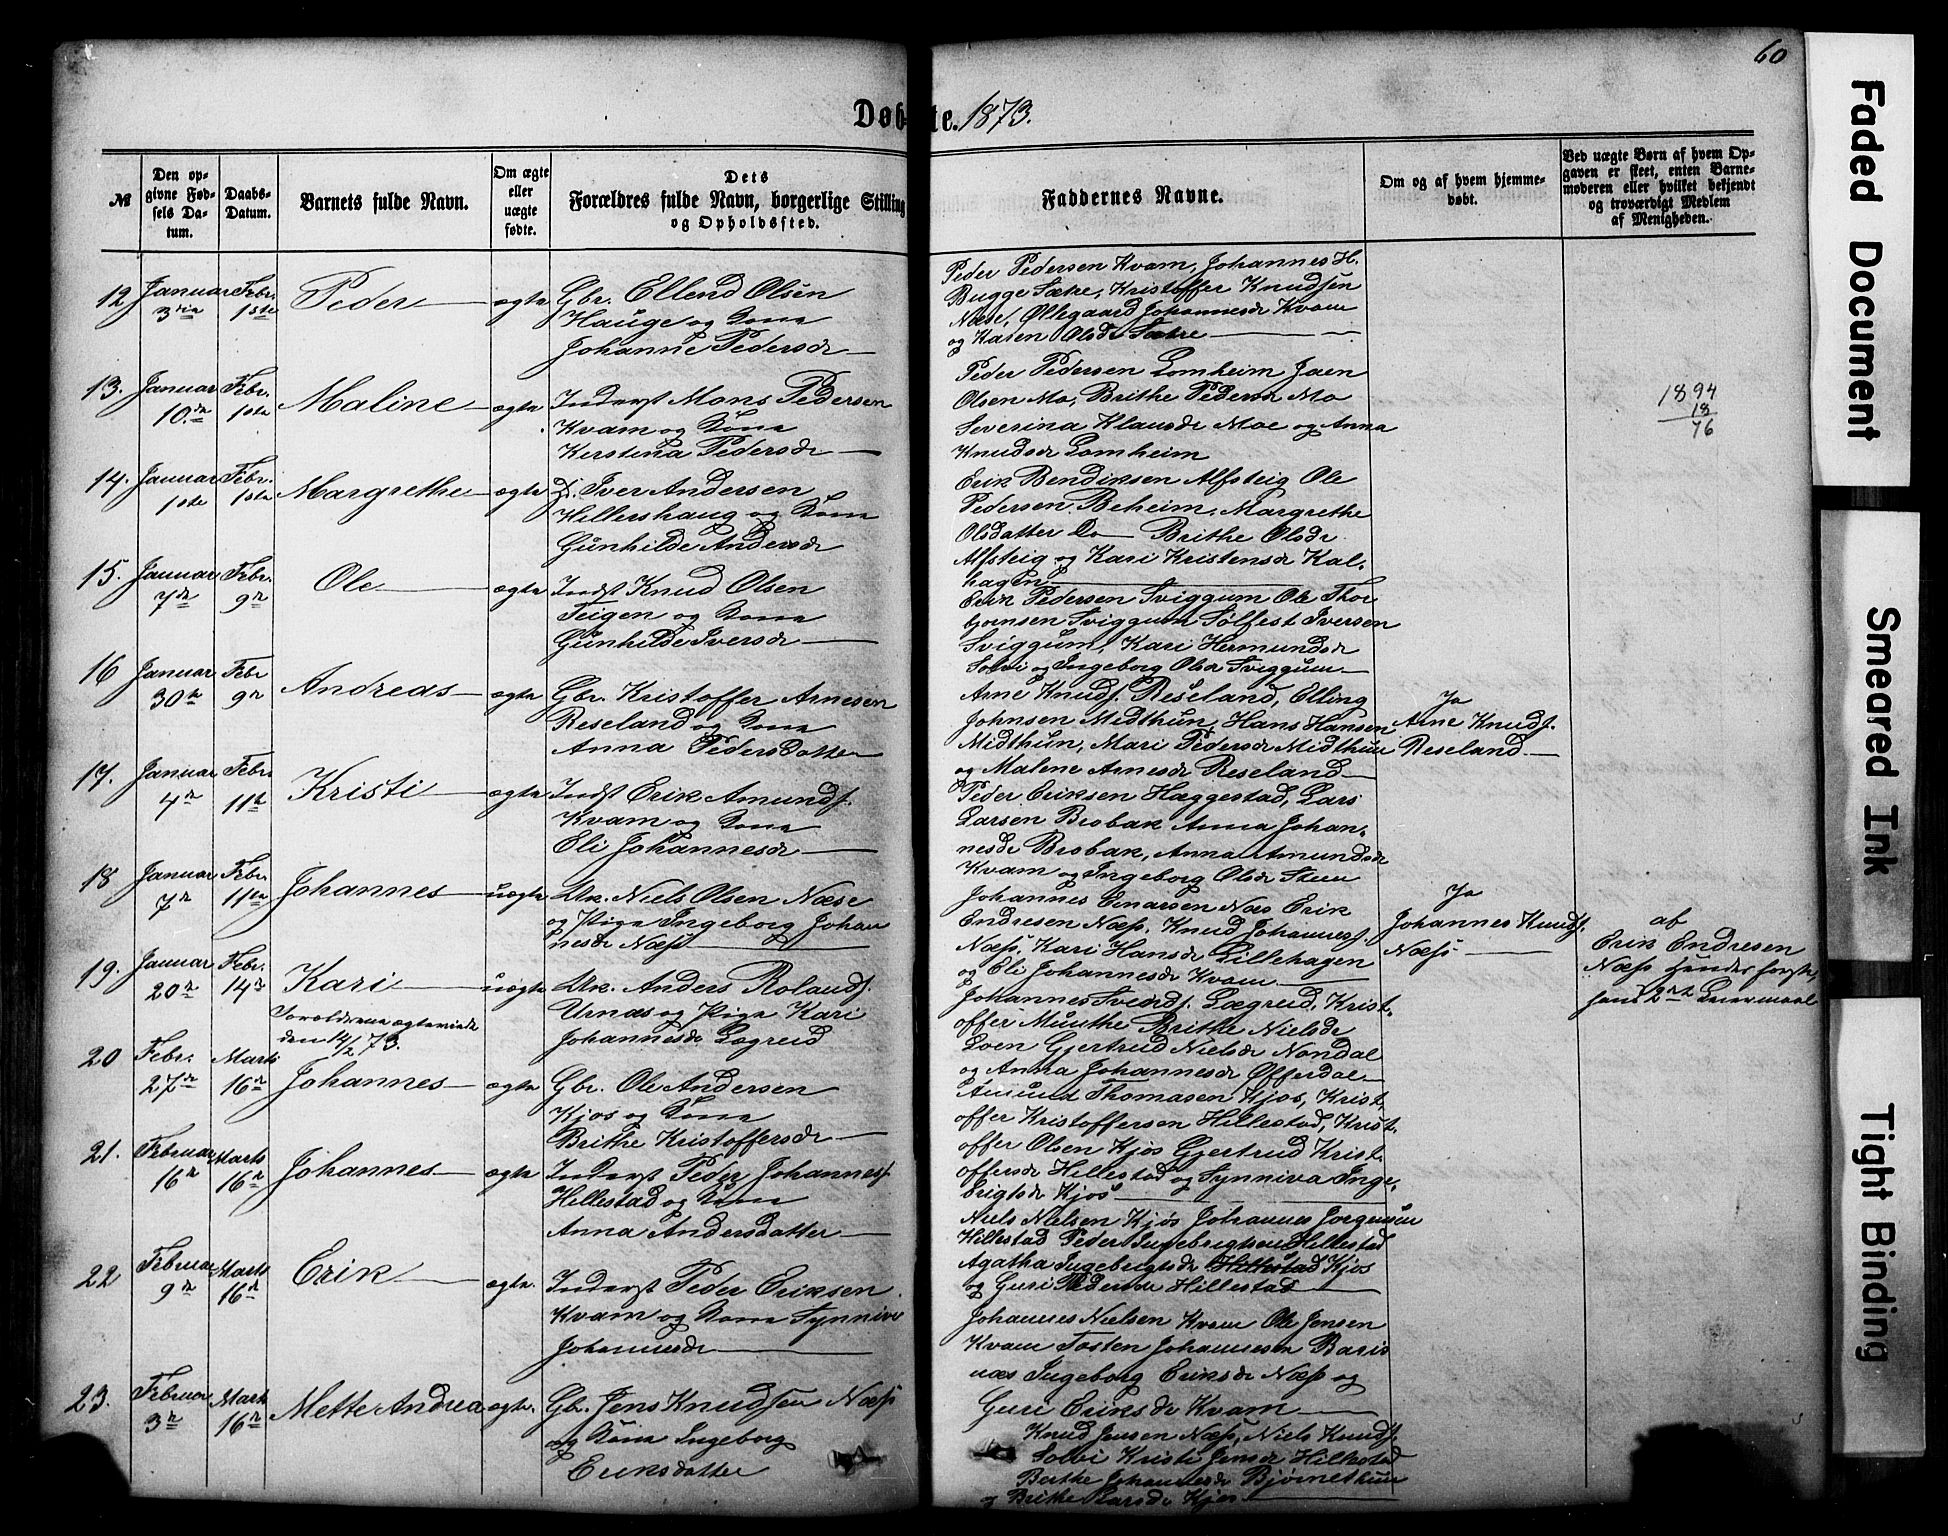 60
Døbte. 1873.
№
Den opgivne Fødsels Datum.
Daabs-Datum.
Barnets fulde Navn.
Om ægte eller uægte fødte.
Dets Forældres fulde Navn, borgerlige Stilling og Opholdssted.
Faddernes Navne.
Om og af hvem hjemmedøbt.
Ved uægte Børn af hvem Opgaven er skeet, enten Barnemoderen eller hvilket bekjendt og troværdigt Medlem af Menigheden.
12 Januar 3die Febr. 1ste Peder ægte
Gbr. Ellend Olsen
Hauge og Kone
Johanne Pedersdr
Peder Pedersen Kvam, Johannes H.
Bugge Sætre, Kristoffer Knudsen
Næse, Øllegaard Johannesdr Kvam
og Karen Olsdr Sætre
13. Januar 10.de Febr. 1ste Maline ægte
Inderst Mons Pedersen
Kvam og Kone
Kerstina Pedersdr
Peder Pedersen Lomheim Joen
Olsen Mo, Brithe Pedersdr Mo
Severina Klausdr Moe og Anna
Knudsdr Lomheim
1894
18
76
14. Januar 1ste Febr. 1ste Margrethe ægte
D. Iver Andersen
Hillershaug og Kone
Gunhilde Andersdr
Erik Bendiksen Alfsteig Ole
Pedersen Beheim, Margrethe
Olsdatter Do Brithe Olsdr
Alfsteig og Kari Kristensdr Kal-
hagen
15. Januar 7de Febr. 9de Ole ægte
Indst Knud Olsen
Teigen og Kone
Gunhilde Iversdr
Erik Pedersen Sviggum Ole Thor
bjornsen Sviggum Sølfest Iversen
Sviggum, Kari Hermundsdr
Solvi og Ingeborg Olsdr Sviggum
16 Januar 30te Febr 9de Andreas ægte
Gbr. Kristoffer Arnesen
Reseland og Kone
Anna Pedersdatter
Arne Knuds. Reseland, Elling
Johnsen Midthun, Hans Hansen
Midthun, Mari Pedersdr Midthun
og Malene Arnesdr Reseland
Ja
Arne Knuds.
Reseland
17. Januar 4de Febr. 11te Kristi ægte
Indst Erik Amunds.
Kvam og Kone
Eli Johannesdr
Peder Eriksen Hæggestad, Lars
Larsen Brobak Anna Johan-
nesdr Brobak, Anna Amundsdr
Kvam og Ingeborg Olsdr Steen
18 Januar 7de Febr. 11te Johannes uægte
Uk. Niels Olsen Næse
og Pige Ingeborg Johan
nesdr Næss
Johannes Enarsen Næs Erik
Endresen Næss, Knud Johannes.
Næss, Kari Hansdr Lillehagen
og Eli Johannesdr Kvam
Ja
Johannes Knuds.
Næss
af
Erik Endresen
Næss hendes første,
hans 2det Leiermaal
19. Januar 20de Febr. 14de Kari uægte
Forældrene ægteviede
den 14/2 73.
Uk. Anders Rolands.
Urnæs og Pige Kari
Johannesdr Lægreid
Johannes Svends. Lægreid, Krist-
offer Munthe Brithe Nielsdr
Loen Gjertrud Nielsdr Nondal
og Anna Johannesdr Offerdal
20 Febr. 27de Marts 16de Johannes ægte
Gbr. Ole Andersen
Kjos og Kone
Brithe Kristoffersdr
Amund Thomasen Kjos, Krist-
offer Kristoffersen Hillestad, Krist-
offer Olsen Kjos Gjertrud Krist-
offersdr Hillestad og Synniva Inge-
brigtsdr Kjos
21. Februar 16de Marts 16de Johannes ægte
Inderst Peder Johannes.
Hillestad og Kone
Anna Andersdatter
Niels Nielsen Kjos Johannes Jorgensen
Hillestad Peder Ingebrigtsen Hillestad
Agatha Ingebrigtsdr Hillestad Kjos
og Guri Pedersdr Hillestad
22 Februar 9de Marts 16de Erik ægte
Inderst Peder Eriksen
Kvam og Kone Synniva
Johannesdr
Johannes Nielsen Kvam Ole Jensen
Kvam Tosten Johannesen Baris
næs Ingeborg Eriksdr Næss og
Guri Eriksdr Kvam
23. Februar 3de Marts 16de Mette Andrea ægte
Gbr. Jens Knudsen Næss
og Kone Ingeborg
Eriksdatter
Knud Jensen Næss, Niels Knuds.
Solvi Kristi Jensdr Hillestad
Berthe Johannesdr Bjørnethun
og Brithe Larsdr Kjos
Faded Document
Smeared Ink
Tight Binding